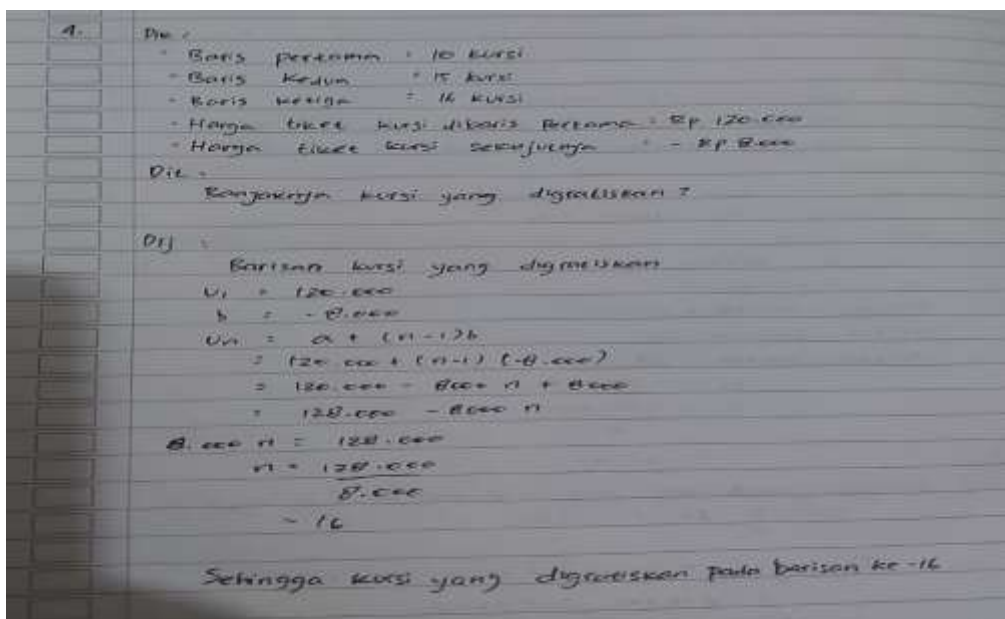 4. Dik :
- Baris pertama = 10 kursi
- Baris kedua = 15 kursi
- Baris ketiga = 16 kursi
- Harga tiket kursi dibaris pertama = Rp 120.000
- Harga tiket kursi selanjutnya = - Rp 8.000
Dit :
Banyaknya kursi yang digratiskan ?
Dij :
Barisan kursi yang digratiskan
U₁ = 120.000
b = - 8.000
Un = a + (n-1)b
= 120.000 + (n-1) (-8.000)
= 120.000 - 8000 n + 8000
= 128.000 - 8000 n
8.000 n = 128.000
n = 128.000
8.000
= 16
Sehingga kursi yang digratiskan pada barisan ke-16